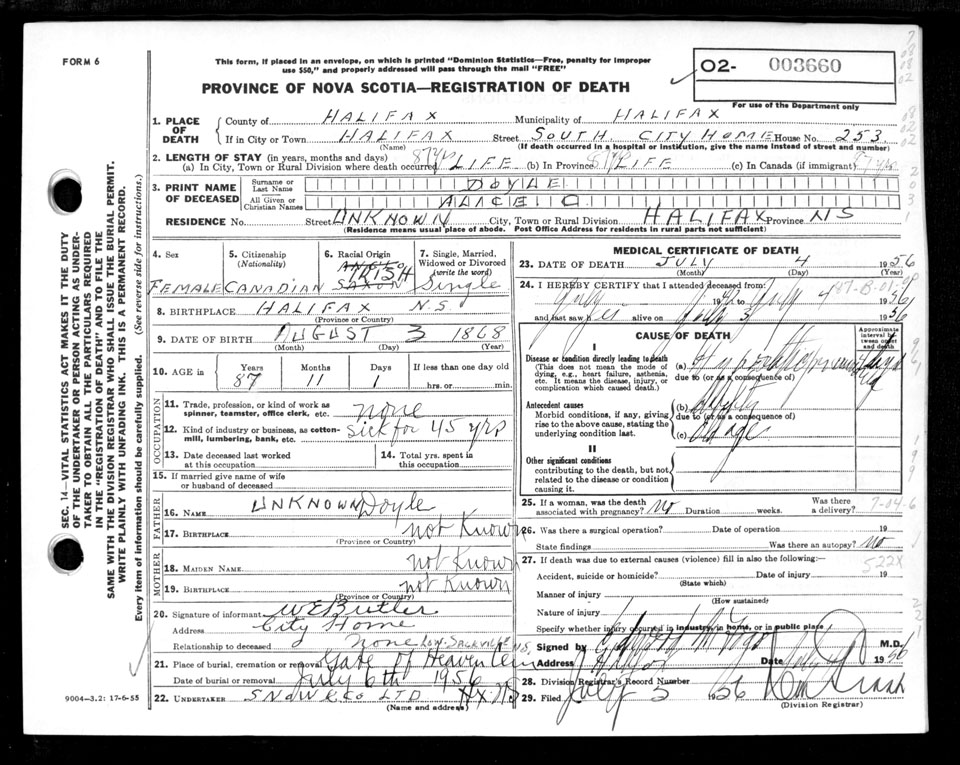 FORM 6
This form, if placed in an envelope, on which is printed "Dominion Statistics—Free, penalty for improper
use $50," and properly addressed will pass through the mail "FREE"
PROVINCE OF NOVA SCOTIA—REGISTRATION OF DEATH
O2- 003660
For use of the Department only
1. PLACE OF DEATH
County of HALIFAX Municipality of HALIFAX
If in City or Town HALIFAX Street SOUTH CITY HOME House No. 253
(Name) (If death occurred in a hospital or institution, give the name instead of street and number)
2. LENGTH OF STAY (in years, months and days)
(a) In City, Town or Rural Division where death occurred 87 yrs LIFE (b) In Province 87 yr LIFE (c) In Canada (if immigrant) 87 yrs
3. PRINT NAME OF DECEASED
Surname or Last Name DOYLE
All Given or Christian Names ALICE
RESIDENCE No. Street UNKNOWN City, Town or Rural Division HALIFAX Province NS
(Residence means usual place of abode. Post Office Address for residents in rural parts not sufficient)
4. Sex FEMALE
5. Citizenship (Nationality) CANADIAN
6. Racial Origin ANGLO SAXON IRISH
7. Single, Married, Widowed or Divorced (write the word) Single
8. BIRTHPLACE HALIFAX N.S.
(Province or Country)
9. DATE OF BIRTH AUGUST 3 1868
(Month) (Day) (Year)
10. AGE in Years 87 Months 11 Days 1 If less than one day old hrs. or min.
OCCUPATION
11. Trade, profession, or kind of work as spinner, teamster, office clerk, etc. none
12. Kind of industry or business, as cotton-mill, lumbering, bank, etc. sick for 45 yrs
13. Date deceased last worked at this occupation
14. Total yrs. spent in this occupation
15. If married give name of wife or husband of deceased
FATHER
16. NAME UNKNOWN Doyle
17. BIRTHPLACE not Known
(Province or Country)
MOTHER
18. MAIDEN NAME not Known
19. BIRTHPLACE not Known
(Province or Country)
20. Signature of informant W E Butler
Address City Home
Relationship to deceased None
LOW. SACKVILLE NS.
21. Place of burial, cremation or removal Gate of Heaven Cem
Date of burial or removal July 6th 1956
22. UNDERTAKER SNOW & CO LTD HX NS
(Name and address)
MEDICAL CERTIFICATE OF DEATH
23. DATE OF DEATH JULY 4 1956
(Month) (Day) (Year)
24. I HEREBY CERTIFY that I attended deceased from:
July 19 to July 4 1956
and last saw alive on July 3 1956
CAUSE OF DEATH
Approximate interval between onset and death
I
Disease or condition directly leading to death
(This does not mean the mode of dying, e.g., heart failure, asthenia, etc. It means the disease, injury, or complication which caused death.)
(a)
due to (or as a consequence of)
Antecedent causes
Morbid conditions, if any, giving rise to the above cause, stating the underlying condition last.
(b)
due to (or as a consequence of)
(c)
II
Other significant conditions
contributing to the death, but not related to the disease or condition causing it.
25. If a woman, was the death associated with pregnancy? No Duration weeks. Was there a delivery?
26. Was there a surgical operation? Date of operation 19
State findings Was there an autopsy? No
522X
27. If death was due to external causes (violence) fill in also the following:—
Accident, suicide or homicide? Date of injury 19
(State which)
Manner of injury
(How sustained)
Nature of injury
Specify whether injury occurred in industry, in home, or in public place
Signed by M.D.
Address Date 1956
28. Division Registrar's Record Number
29. Filed July 5 1956
(Division Registrar)
SEC. 14—VITAL STATISTICS ACT MAKES IT THE DUTY
OF THE UNDERTAKER OR PERSON ACTING AS UNDER-
TAKER TO OBTAIN ALL THE PARTICULARS REQUIRED
IN THE "REGISTRATION OF DEATH" AND TO FILE THE
SAME WITH THE DIVISION REGISTRAR WHO SHALL ISSUE THE BURIAL PERMIT.
WRITE PLAINLY WITH UNFADING INK. THIS IS A PERMANENT RECORD.
Every item of information should be carefully supplied. (See reverse side for instructions.)
9004—3.2: 17-6-55